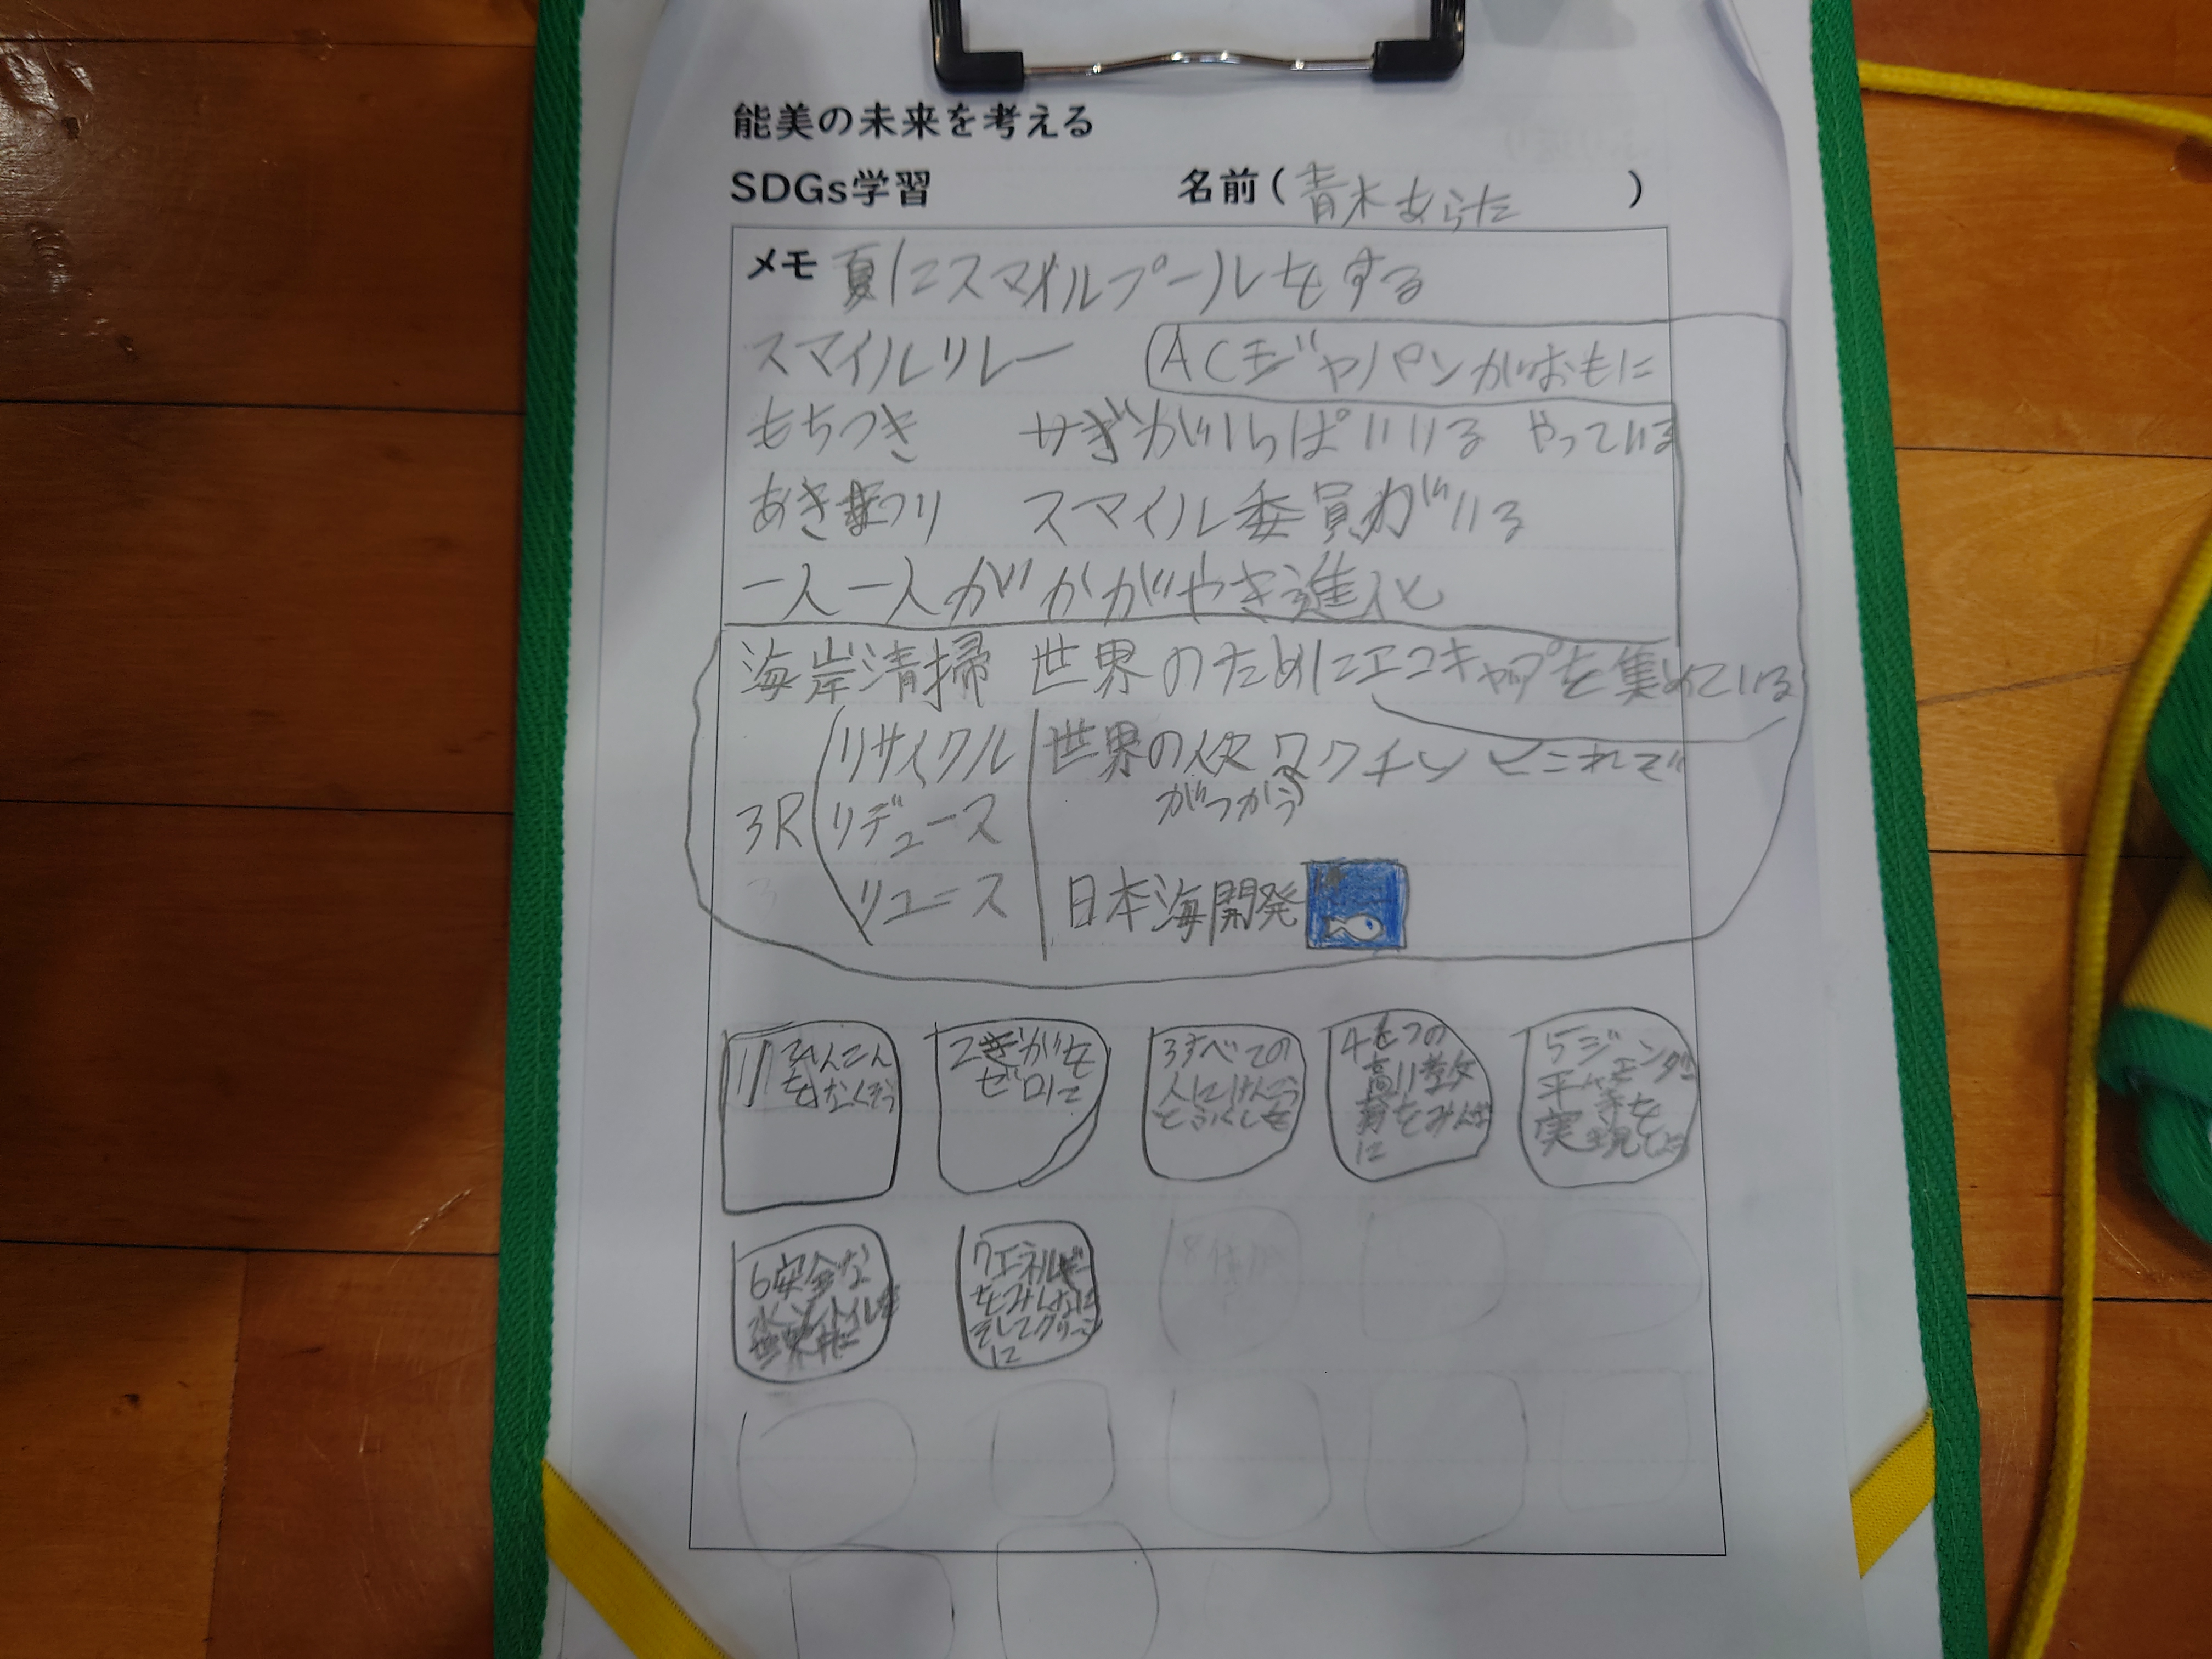 能美の未来を考える
SDGs学習 名前(青木あらた)
メモ 夏にスマイルプールをする
スマイルリレー ACジャパンがおもに
もちつき サギがいっぱいいる やっている
あきまつり スマイル委員がいる
一人一人がかがやき進化
海岸清掃 世界のためにエコキャップを集めている
リサイクル 世界の ワクチン
3R リデュース
リユース 日本海開発
1 ひんこん
をなくそう
2 きがを
ゼロに
3すべての
人にけんこう
とふくしを
4もつの
高い教
育をみんな
に
5ジェンダー
平等を
実現しよう
6安全な
水とトイレを
世界中に
7エネルギー
をみんなに
そしてクリーン
に